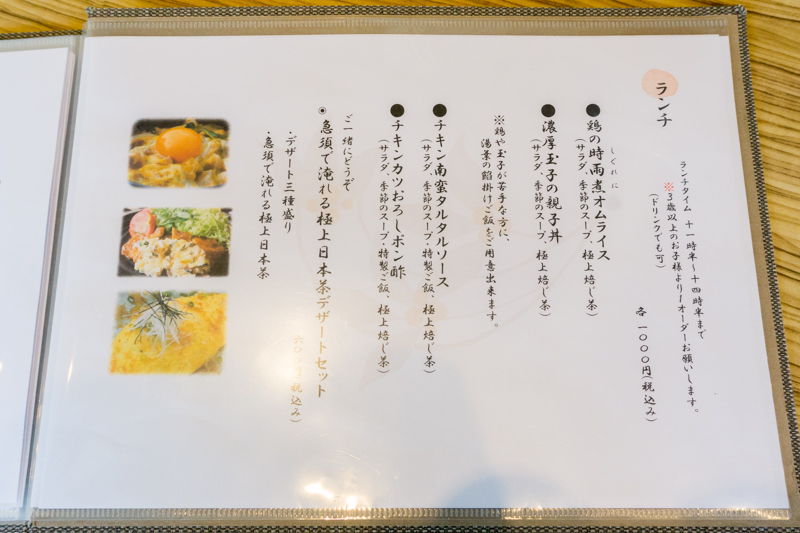 ランチ
ランチタイム 十一時半〜十四時半まで
※3歳以上のお子様より1オーダーお願いします。
(ドリンクでも可)
各 一〇〇〇円(税込み)
しぐれに
●鶏の時雨煮オムライス
(サラダ、季節のスープ、極上焙じ茶)
●濃厚玉子の親子丼
(サラダ、季節のスープ、極上焙じ茶)
※鶏や玉子が苦手な方に、
湯葉の餡掛けご飯をご用意出来ます。
●チキン南蛮タルタルソース
(サラダ、季節のスープ・特製ご飯、極上焙じ茶)
●チキンカツおろしポン酢
(サラダ、季節のスープ・特製ご飯、極上焙じ茶)
ご一緒にどうぞ
◉急須で淹れる極上日本茶デザートセット
税込み)
・デザート三種盛り
・急須で淹れる極上日本茶